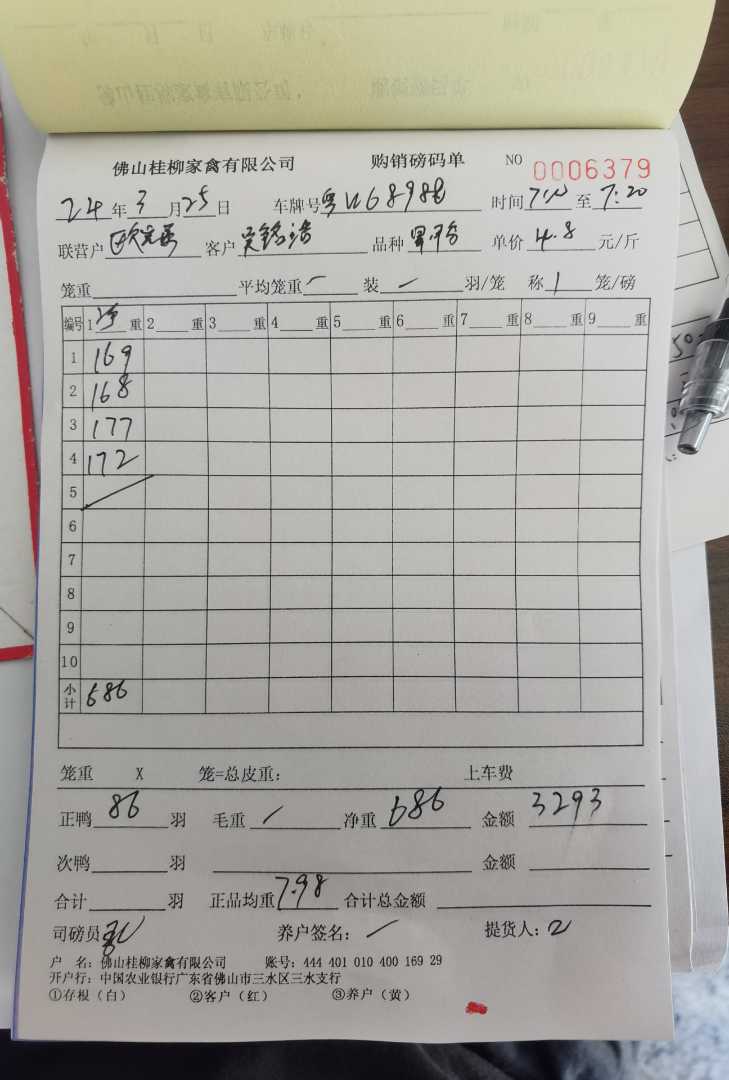 佛山桂柳家禽有限公司 购销磅码单 NO 0006379
24年3月25日 车牌号粤 时间 至7:20
联营户 客户 品种 单价4.8元/斤
笼重 平均笼重 装 羽/笼 称1笼/磅
编号 1净重 2重 3重 4重 5重 6重 7重 8重 9重
1 169
2 168
3 177
4 172
5
6
7
8
9
10
小计 686
笼重 X 笼=总皮重: 上车费
正鸭86羽 毛重 / 净重686 金额3293
次鸭 羽 金额
合计 羽 正品均重7.98 合计总金额
司磅员 养户签名: 提货人:
户 名: 佛山桂柳家禽有限公司 账号: 444 401 010 400 169 29
开户行: 中国农业银行广东省佛山市三水区三水支行
①存根（白） ②客户（红） ③养户（黄）